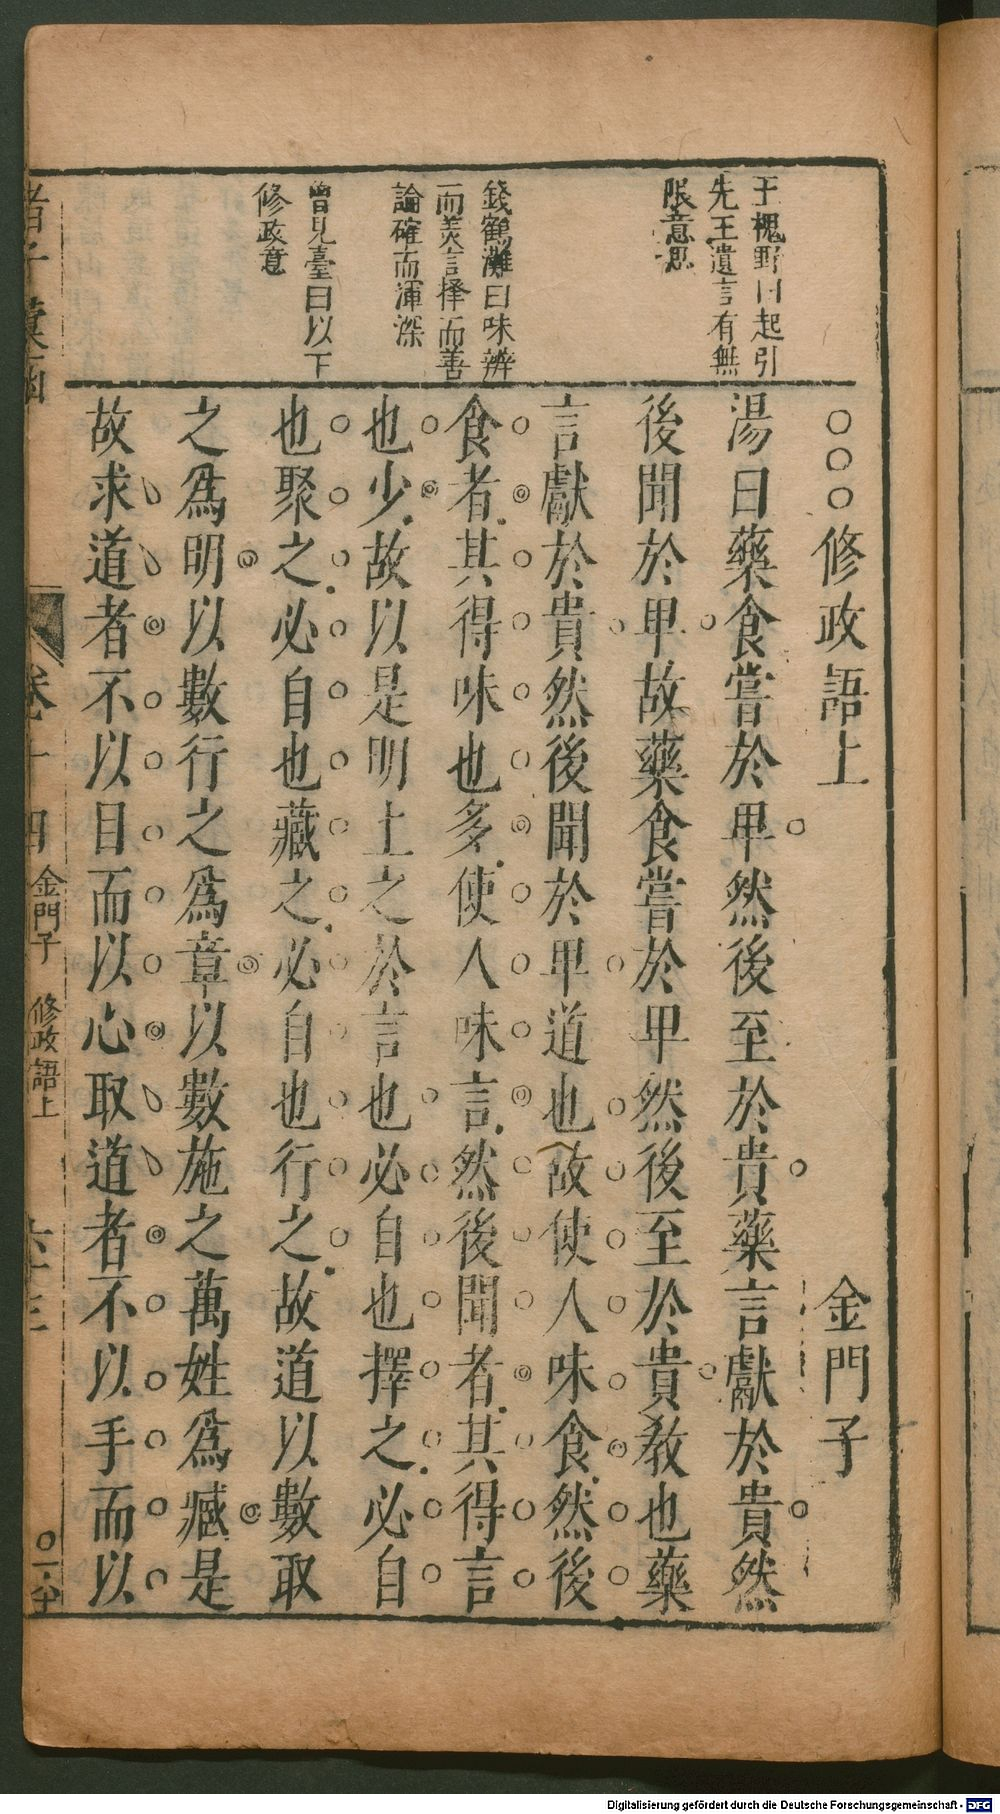 王槐野曰起引
先王遺言有無
限意思
錢鶴灘曰味辨
而美言擇而善
論確而渾深
曾見臺曰以下
修政意
○○○修政語上 金門子
湯曰藥食嘗於卑然後至於貴藥言獻於貴然
後聞於卑故藥食嘗於卑然後至於貴教也藥
言獻於貴然後聞於卑道也故使人味食然後
食者其得味也多使人味言然後聞者其得言
也少故以是明上之於言也必自也擇之必自
也聚之必自也藏之必自也行之故道以數取
之為明以數行之為章以數施之萬姓為臧是
故求道者不以目而以心取道者不以手而以
諸子彙函 卷十四 金門子 修政語上 六十三
Digitalisierung gefördert durch die Deutsche Forschungsgemeinschaft - DFG